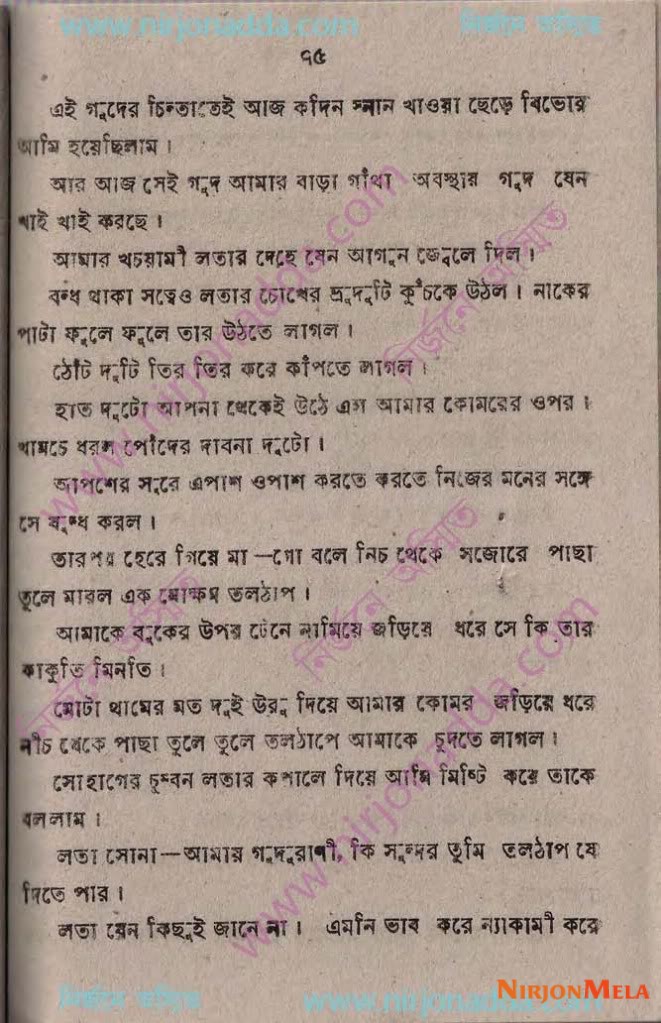 www.nirjonadda.com নির্জনে অমিতে
৭৫
এই গুদের চিন্তাতেই আজ কদিন স্নান খাওয়া ছেড়ে বিভোর
আমি হয়েছিলাম।
আর আজ সেই গুদ আমার বাড়া গাঁথা অবস্থায় গুদ যেন
খাই খাই করছে।
আমার লতার দেহে যেন আগুন জ্বেলে দিল।
বন্ধ থাকা সত্বেও লতার চোখের ভ্রূদুটি কুঁচকে উঠল। নাকের
পাটা ফুলে ফুলে তার উঠতে লাগল।
ঠোঁট দুটি তির তির করে কাঁপতে লাগল।
হাত দুটো আপনা থেকেই উঠে এল আমার কোমরের ওপর।
খামচে ধরল পোঁদের দাবনা দুটো।
আপশের সুরে এপাশ ওপাশ করতে করতে নিজের মনের সঙ্গে
সে যুদ্ধ করল।
তারপর হেরে গিয়ে মা—গো বলে নিচ থেকে সজোরে পাছা
তুলে মারল এক মোক্ষম তলঠাপ।
আমাকে বুকের উপর টেনে নামিয়ে জড়িয়ে ধরে সে কি তার
কাকুতি মিনতি।
মোটা থামের মত দুই উরু দিয়ে আমার কোমর জড়িয়ে ধরে
নীচ থেকে পাছা তুলে তুলে তলঠাপে আমাকে চুদতে লাগল।
সোহাগের চুম্বন লতার কপালে দিয়ে আমি মিষ্টি করে তাকে
বললাম।
লতা সোনা—আমার গুদুরাণী, কি সুন্দর তুমি তলঠাপ যে
দিতে পার।
লতা যেন কিছুই জানে না। এমনি ভাব করে ন্যাকামী করে
www.nirjonadda.com
NIRJONMELA